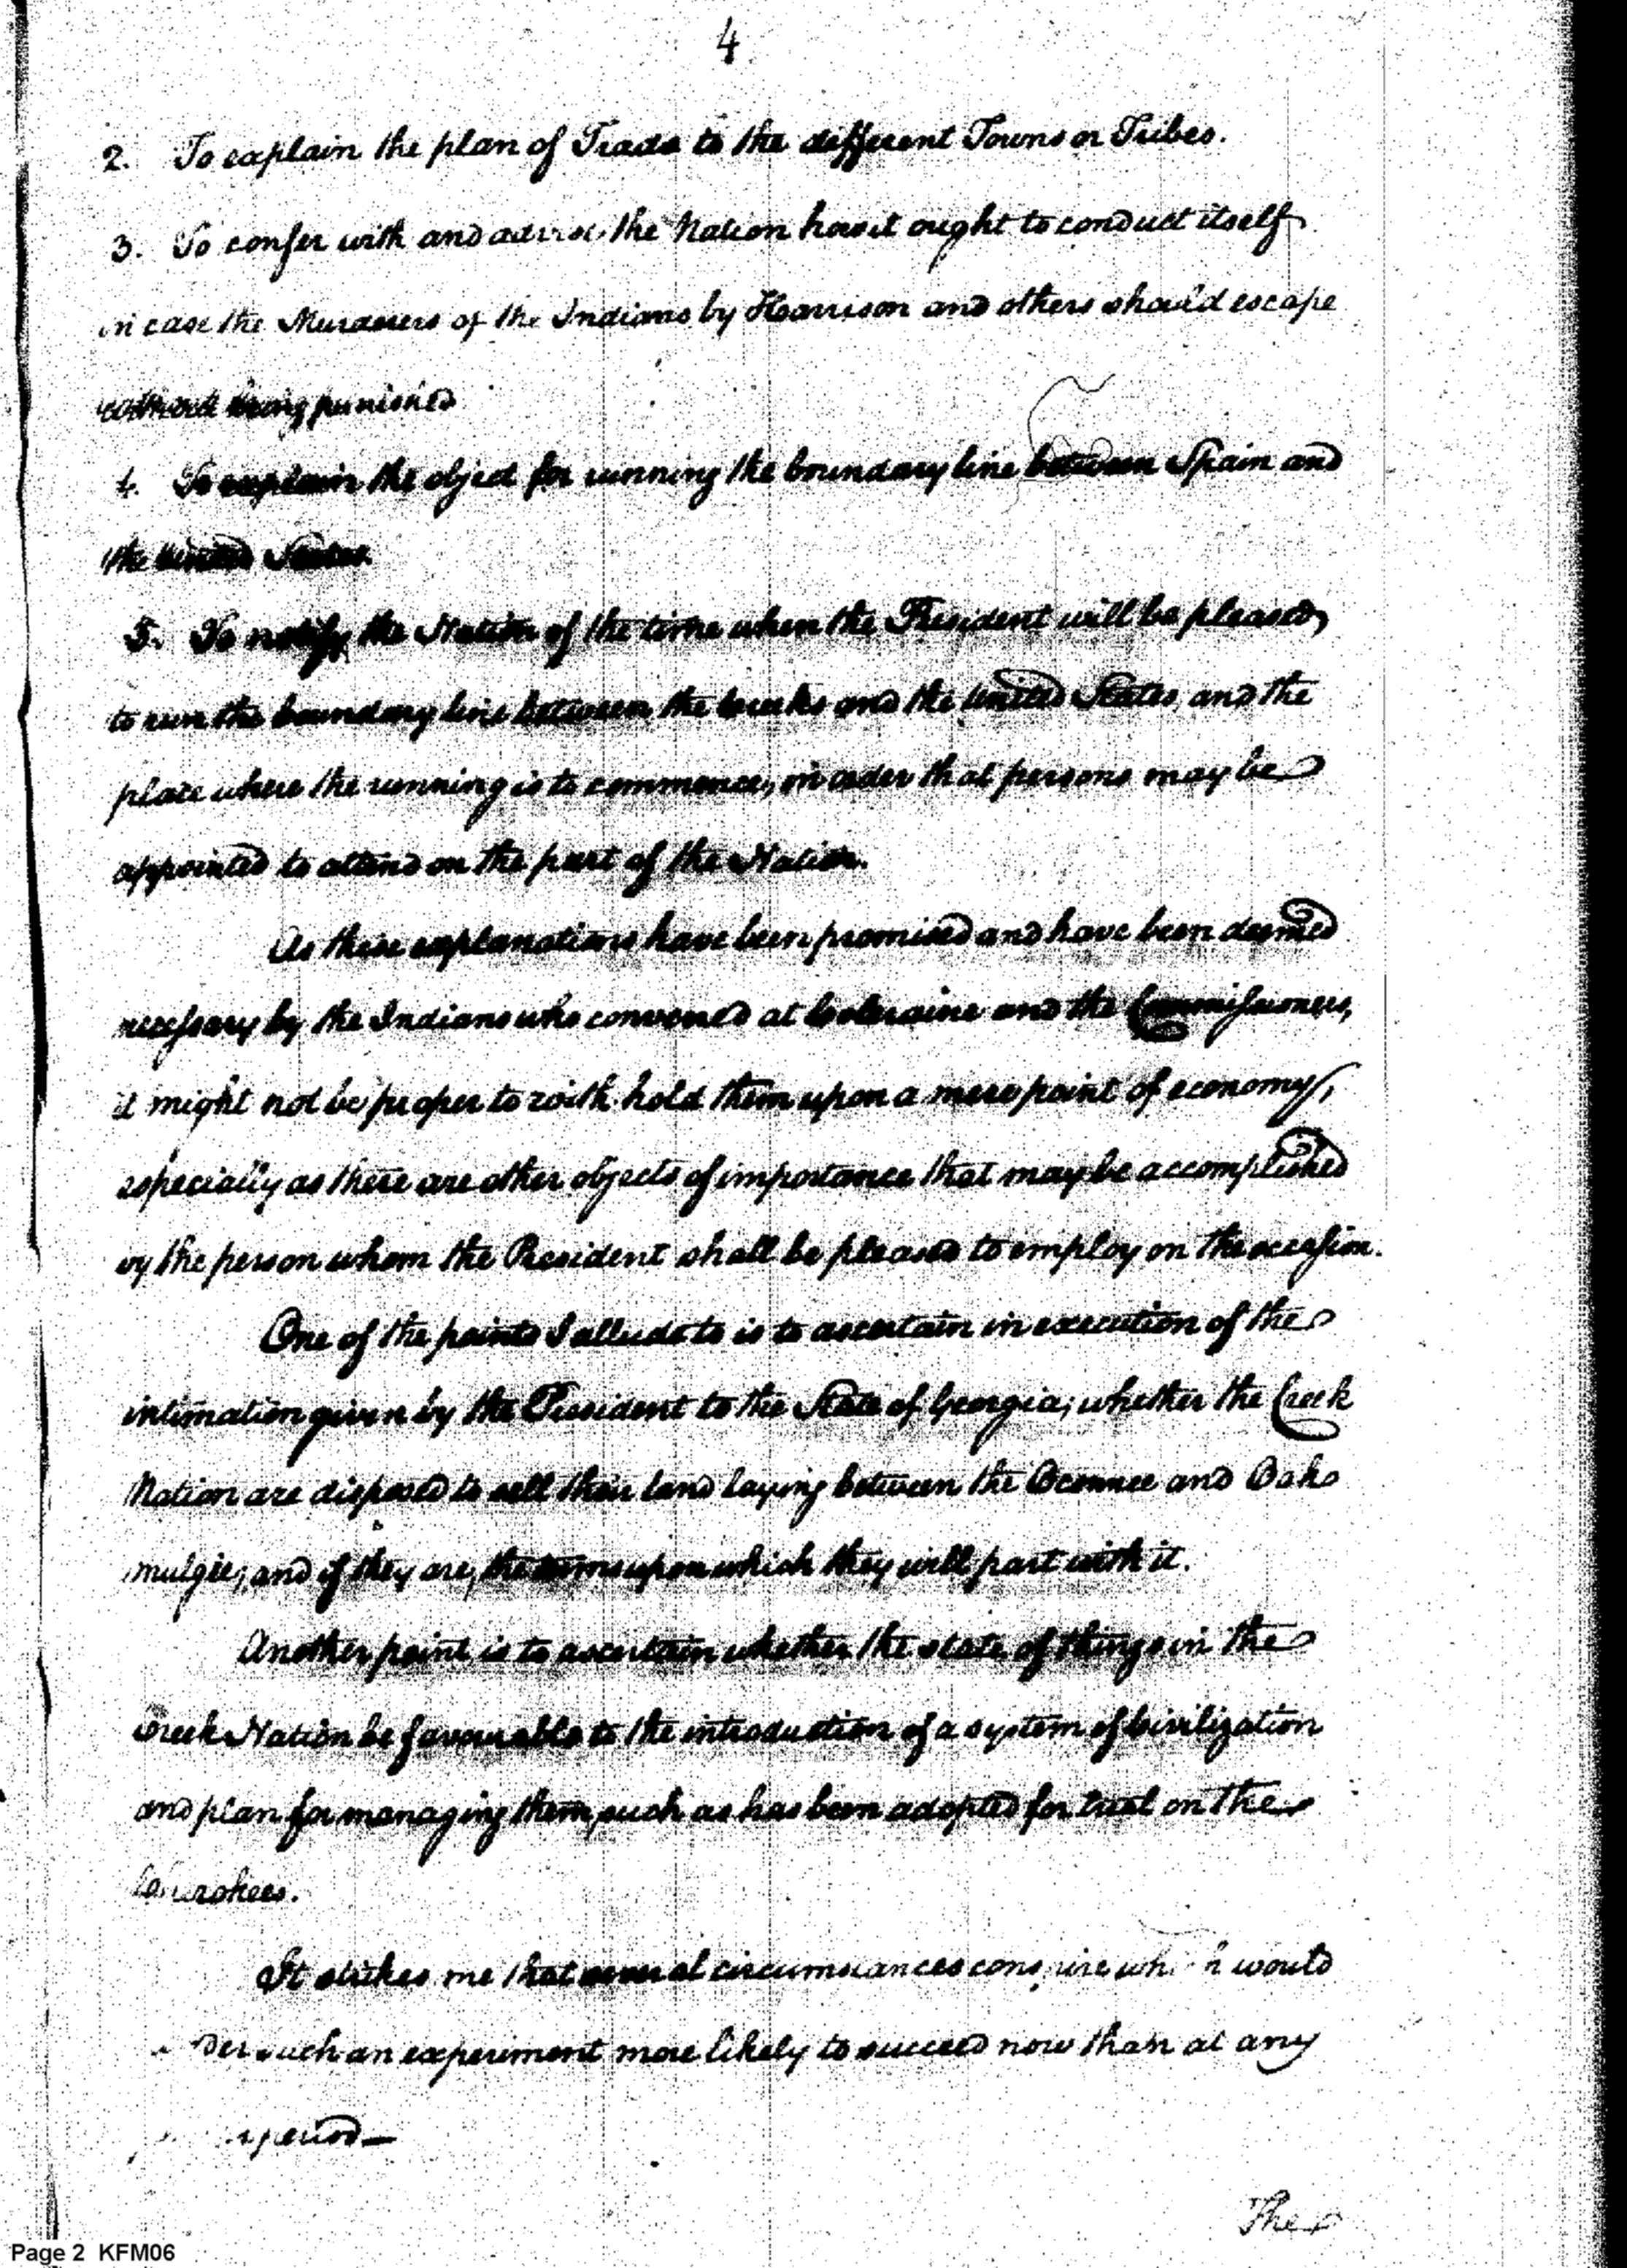 4
2. To explain the plan of Trade to the different Towns or Tribes.
3. To confer with and advise the Nation how it ought to conduct itself
in case the Murderers of the Indians by Harrison and others should escape
without being punished
4. To explain the object for running the boundary line between Spain and
the United States.
5. To notify the Nation of the time when the President will be pleased
to run the boundary line between the Creeks and the United States, and the
place where the running is to commence, in order that persons may be
appointed to attend on the part of the Nation.
As these explanations have been promised and have been deemed
necessary by the Indians who convened at Coleraine and the Commissioners,
it might not be proper to with hold them upon a mere point of economy,
especially as there are other objects of importance that may be accomplished
by the person whom the President shall be pleased to employ on the occasion.
One of the points I allude to is to ascertain in execution of the
intimation given by the President to the State of Georgia; whether the Creek
Nation are disposed to sell their land laying between the Oconnee and Oak
mulgie; and if they are, the terms upon which they will part with it.
Another point is to ascertain whether the state of things in the
Creek Nation be favourable to the introduction of a system of Civilization
and plan for managing them, such as has been adopted for trial on the
Cherokees.
It strikes me that several circumstances conspire which would
such an experiment more likely to succeed now than at any
period—
The
Page 2 KFM06